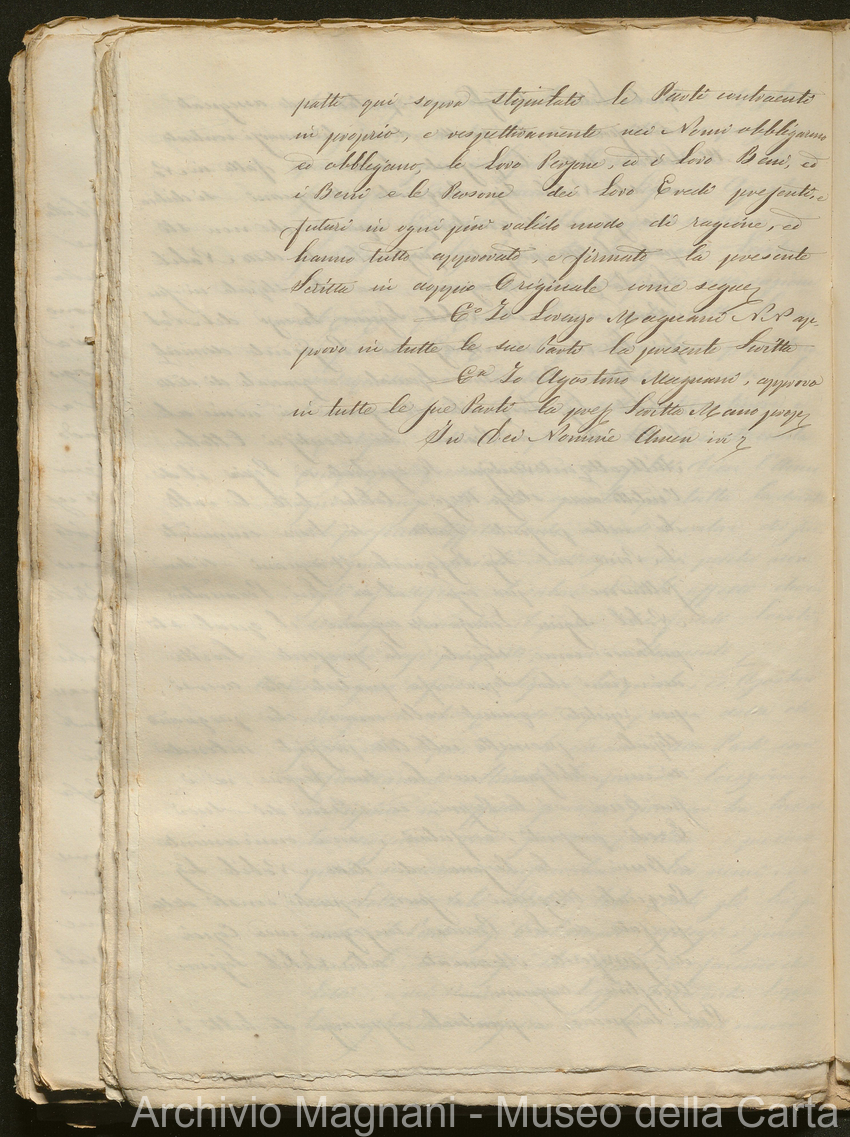 patti qui sopra stipulati le Parti contraenti
in proprio, e respettivamente nei Nomi obbligarono
ed obbligano, le Loro Persone, ed i Loro Beni, ed
i Beni e le Persone dei Loro Eredi presenti, e
futuri in ogni più valido modo di ragione, ed
hanno tutto approvato, e firmato la presente
Scritta in doppio Originale come segue
Co Io Lorenzo Magnani N N ap-
provo in tutte le sue Parti la presente Scritta
Ca Io Agostino Magnani, approvo
in tutte le sue Parti la pres Scritta Mano propa
In Dei Nomine Amen
Archivio Magnani - Museo della Carta